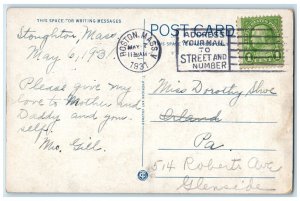 THIS SPACE FOR WRITING MESSAGES
POST CARD
Stoughton, Mass
May 5, 1931
Please give my
love to Mother and
Daddy and your
self.
Mrs. Gill.
BOSTON, MASS.
MAY
11 AM
1931
ADDRESS
YOUR MAIL
TO
STREET AND
NUMBER
Miss Dorothy Shoe
Island
Pa.
514 Roberts Ave
Glenside